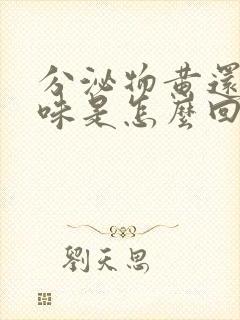 分泌物黄還
味是怎麼回
劉天思